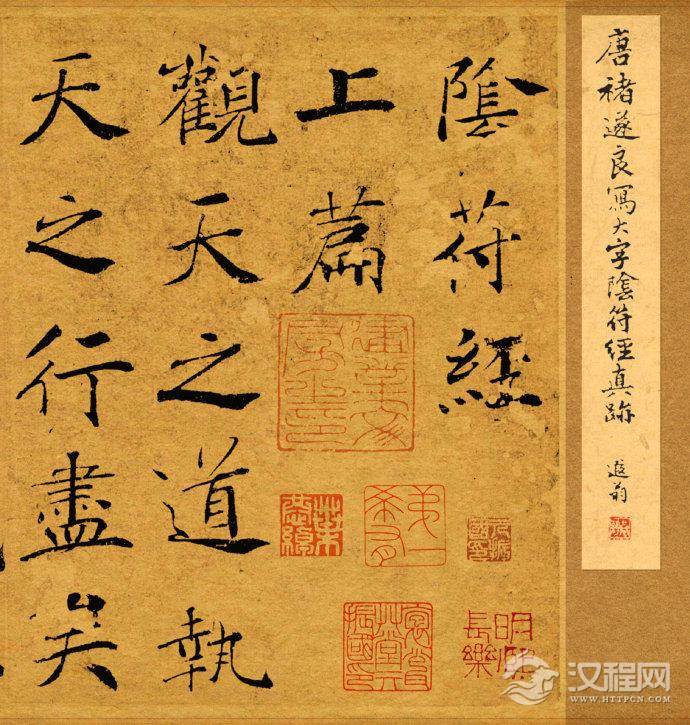 唐褚遂良寫大字陰符經真跡
遐翁
陰符經
上篇
觀天之道執
天之行盡矣
明昌
長樂
汉程网
WWW.HTTPCN.COM